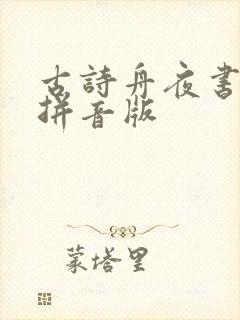 古詩舟夜書
拼音版
蒙塔里